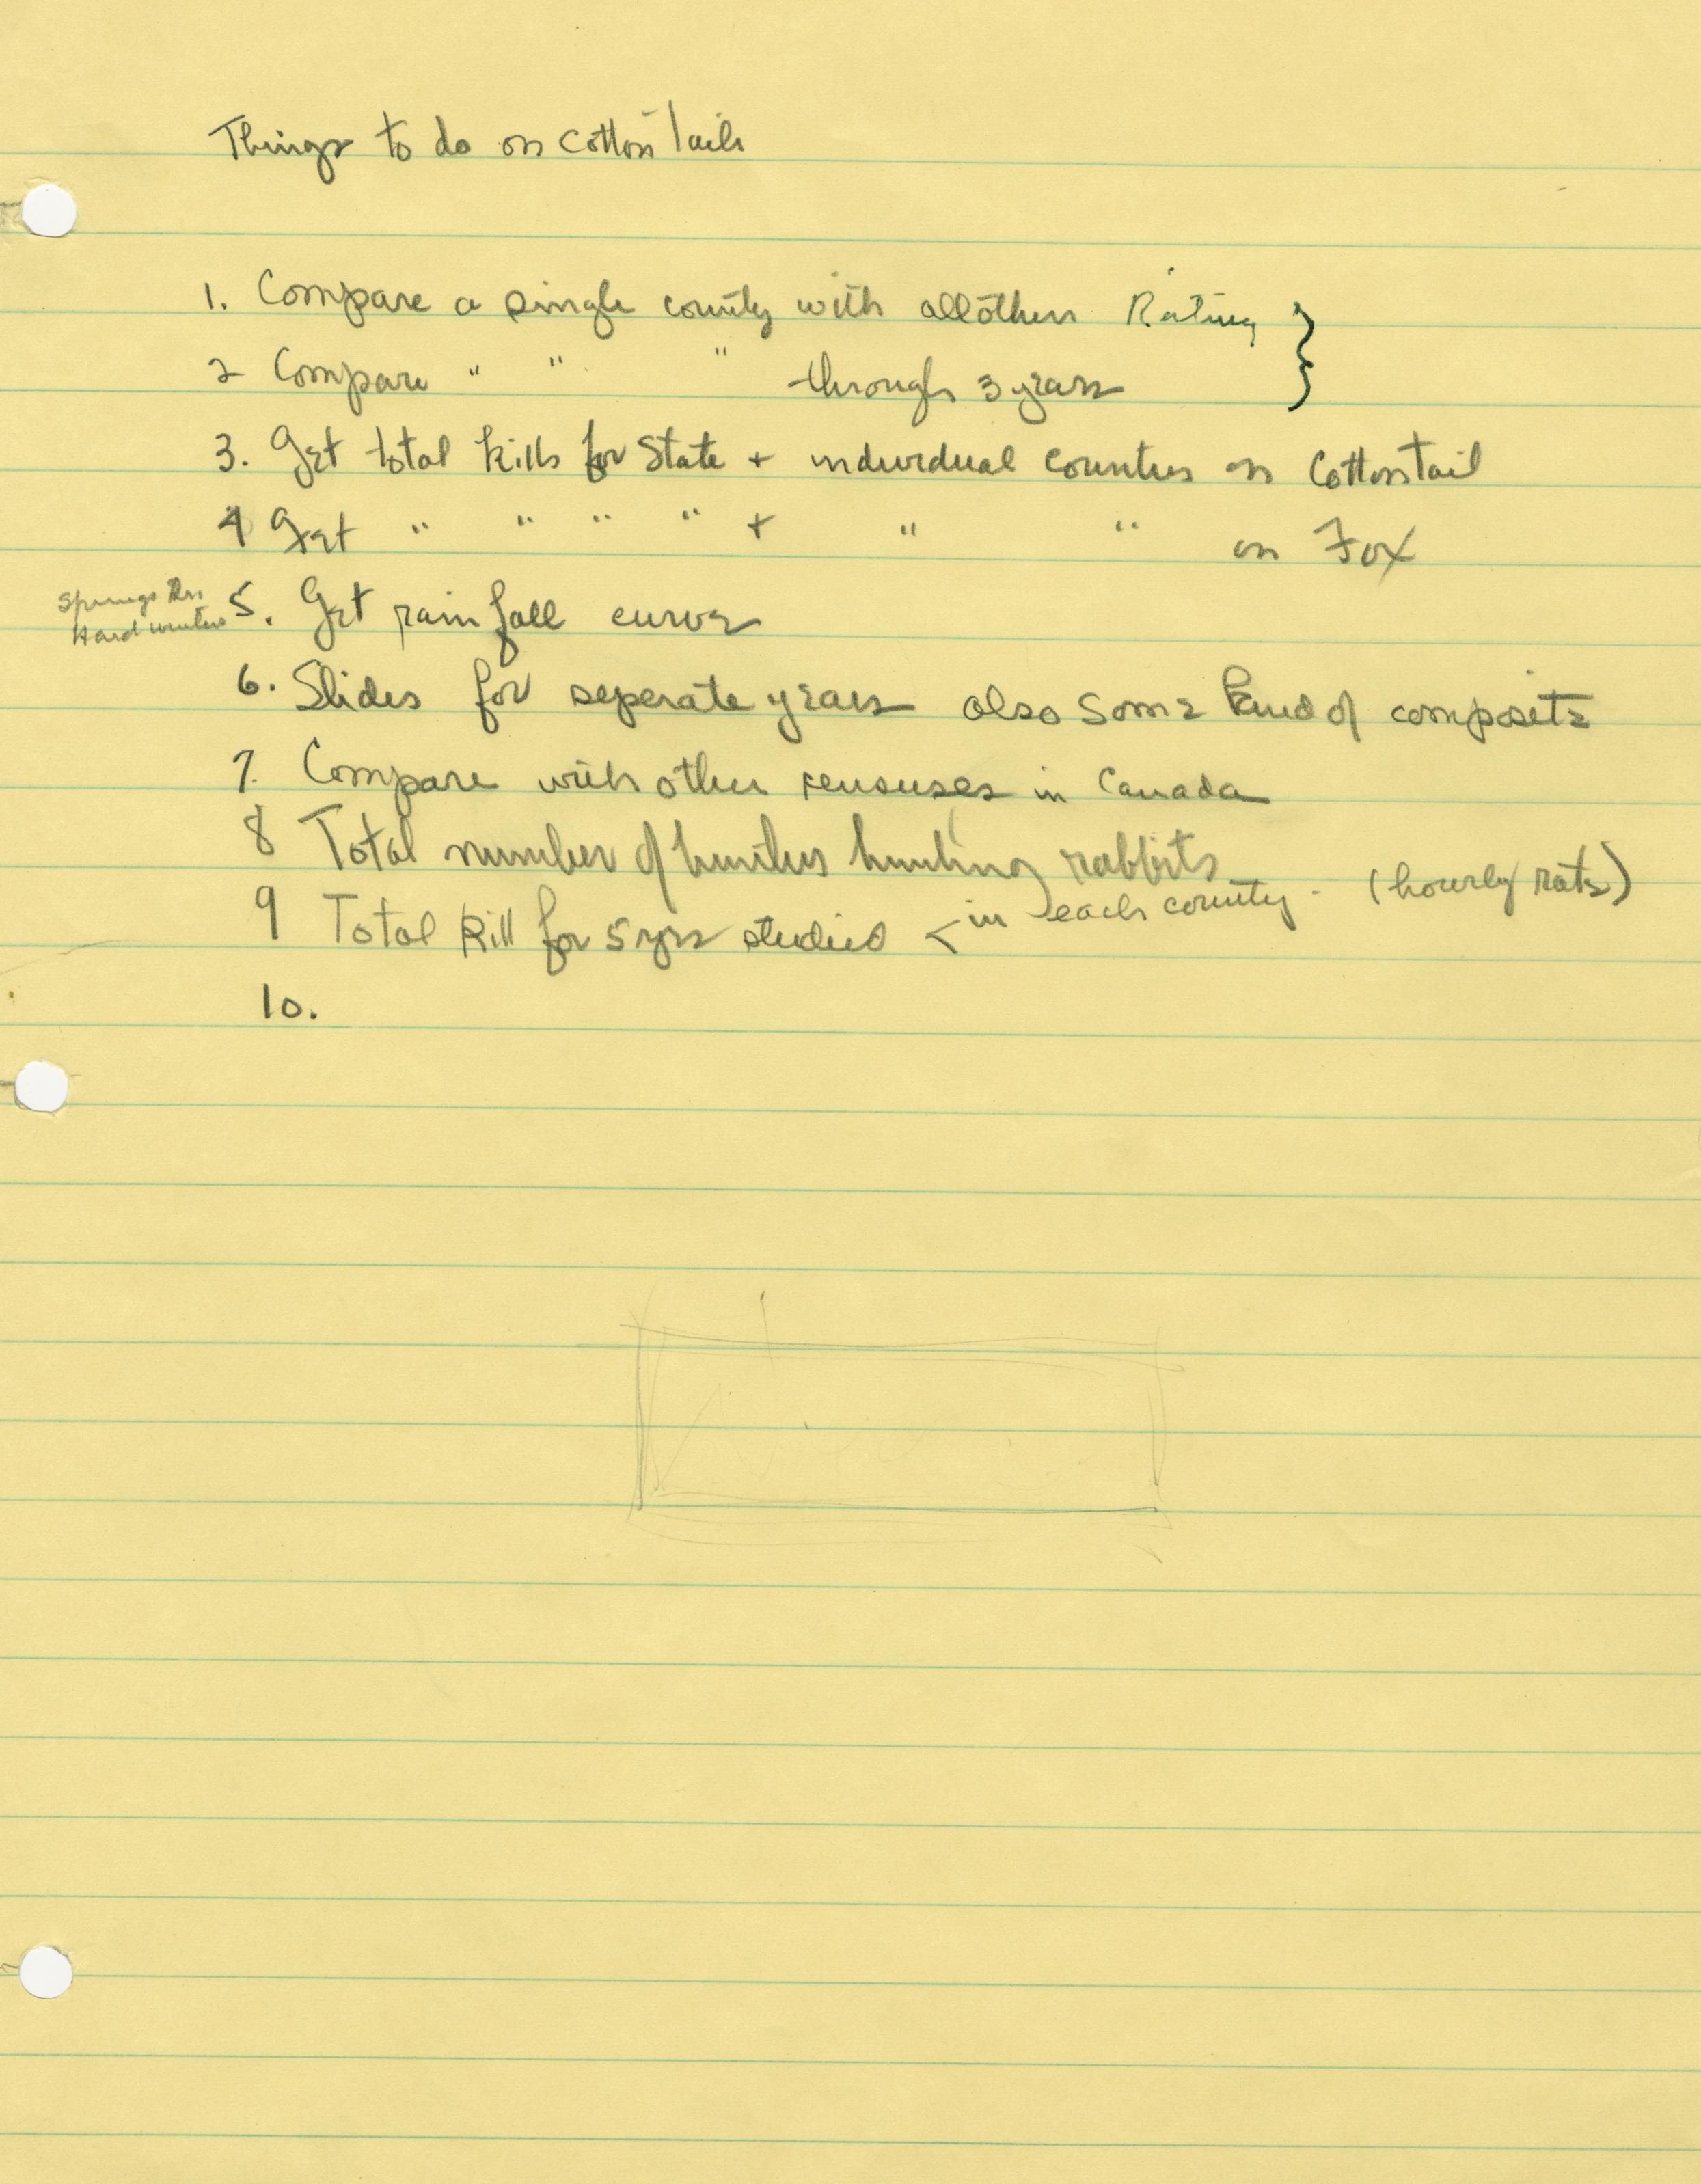 Things to do on Cotton Tails
1. Compare a single county with all others Rating }
2 Compare " " " through 3 years
3. Get total kills for State + individual counties on Cottontail
4 Get " " " " + " " on Fox
Springs
Hard winters
5. Get rain fall curve
6. Slides for seperate years also some kind of composite
7. Compare with other censuses in Canada
8 Total number of hunters hunting rabbits
9 Total kill for 5 yrs studied < in each county. (hourly rate)
10.